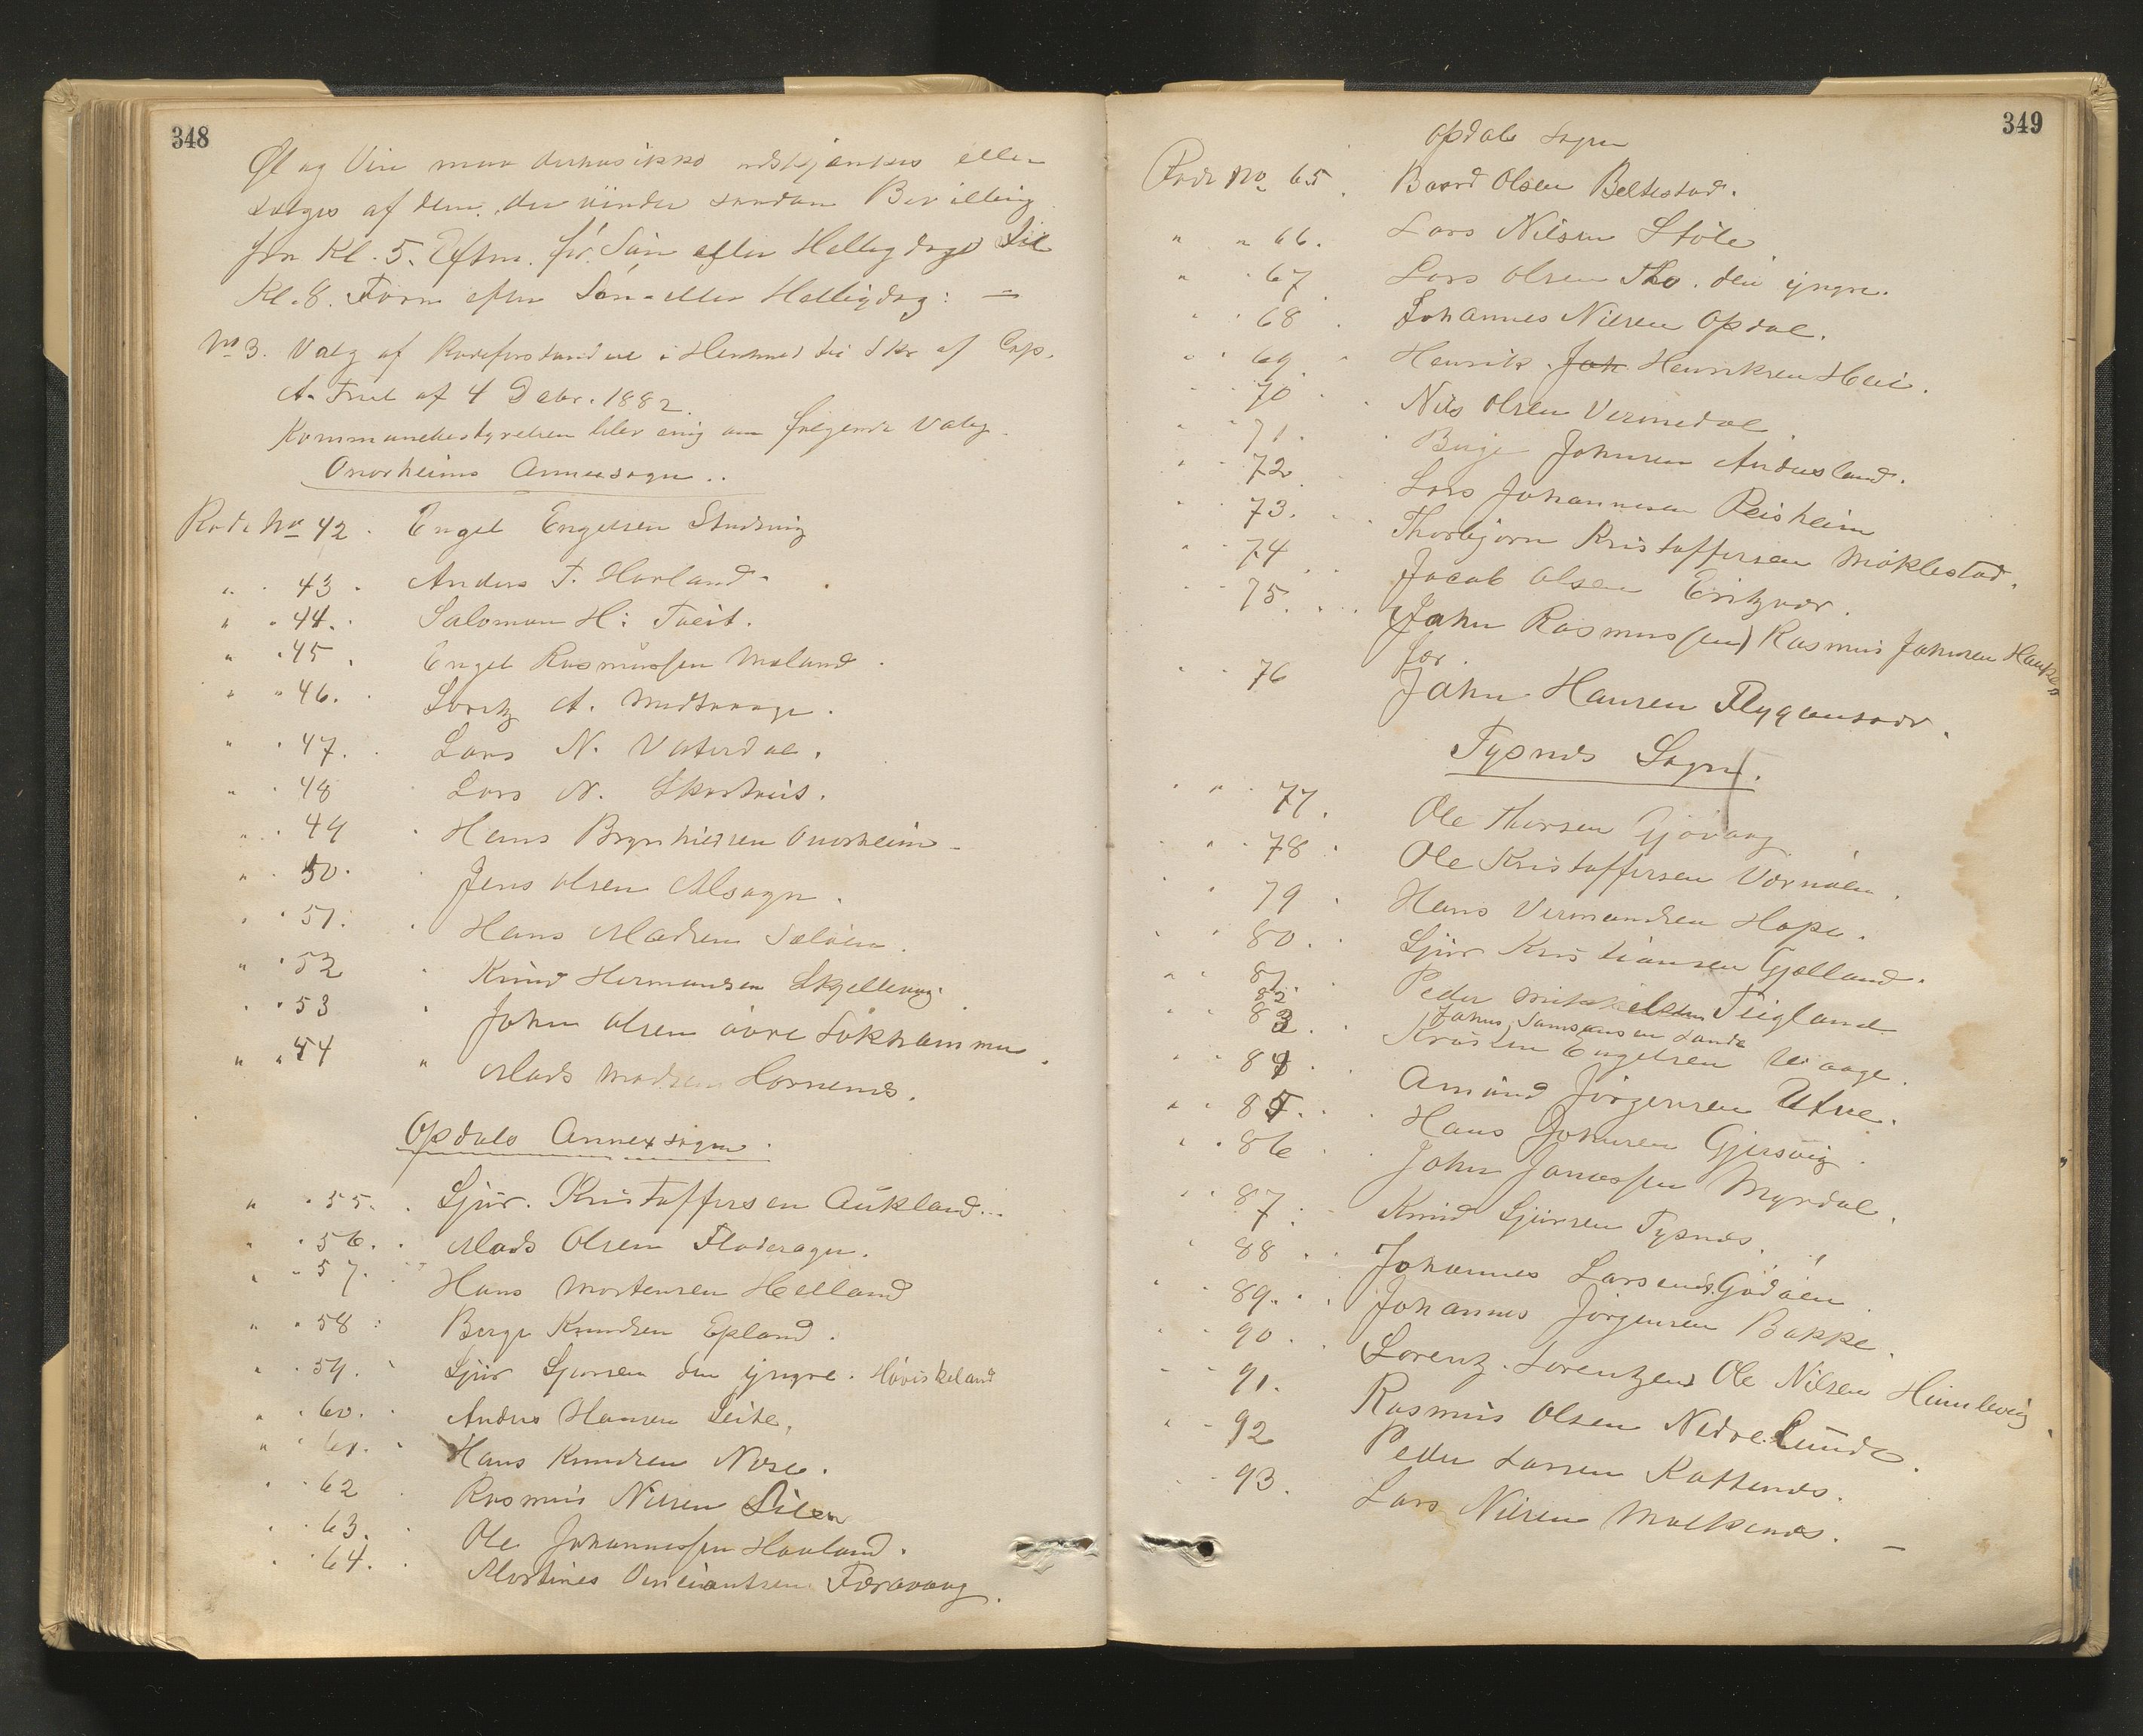 348
Øl og Vin maa derhos ikke udskjænkes eller
sælges af dem, der vinder saadan Bevilling
fra Kl. 5. Eftm. før Søn eller Helligdage til
Kl. 8. Form. efter Søn- eller Helligdag: —
No 3. Valg af Rodeforstandere i Henhold til Skr. af Cap.
A. Friel af 4 Debr. 1882.
Kommunebestyrelsen blev enig om følgende Valg
Onarheims Annexsogn..
Rode No 42. Engel Engelsen Studning
" " 43. Anders T. Harland.
" " 44. Salomon H: Tveit.
" " 45. Engel Rasmussen Meland.
" " 46. Loretz A. Midtvaage.
" " 47. Lars N. Vaterdal.
" " 48 Lars N. Skartveit.
" " 49 Hans Brynhildsen Onarheim
" " 50. Jens Olsen Alsagn.
" " 51. Hans Madsen Seløen.
" " 52 Knud Hermansen Skjellevig.
" " 53 John Olsen øvre Løkhammer.
" " 54 " Mads Madsen Hornenes.
Opdals Annexsogn
" " 55. Sjur. Kristoffersen Aukland..
" " 56. Mads Olsen Flateragn.
" " 57. Hans Mortensen Helland
" " 58 Berge Knudsen Epland.
" " 59. Sjur Sjursen den yngre. Høviskeland
" " 60. Anders Hansen Leite,
" " 61. Hans Knudsen Nese.
" " 62 Rasmus Nilsen Lien
" " 63. Ole Johannessen Haaland.
" " 64. Martines Vincientsen Færavaag.
349
Opdals Sogn
Rode No 65. Baard Olsen Beltestad.
" " 66. Lars Nilsen Støle
" " 67 Lars Olsen Tho. den yngre.
" " 68 Johannes Nilsen Opdal.
" " 69. Henrik Joh Henriksen Hei.
" " 70 Nils Olsen Vermedal.
" " 71. Birge Johnsen Andersland.
" " 72 Lars Johannesen Reisheim
" " 73. Thorbjørn Kristoffersen Møklestad.
" " 74 Jacob Olsen Eritzvær.
" " 75. (John Rasmussen) Rasmus Johnsen Haukaas
for
" " 76 John Hansen Flygansvær.
Tysnes Sogn.
" " 77. Ole Thorsen Gjøvaag
" " 78 Ole Kristoffersen Vernøen.
" " 79 Hans Vermundsen Hope.
" " 80. Sjur Kristiansen Gjelland.
" " 81. Peder Mikkelsen Teigland
82 Johns Samsonsen Lande
" " 83. Kristen Engelsen Uvaage.
" " 84. Amund Jørgensen Utne.
" " 85. Hans Johnsen Gjersvig.
" " 86 John Jonassen Myrdal.
" " 87. Knud Sjursen Tysnes.
" " 88 Johannes Larsen Godøen.
" " 89. Johannes Jørgensen Bakke.
" " 90. Lorentz Lorentzens Ole Nilsen Humlevig.
" " 91. Rasmus Olsen Nedre Lunde.
" " 92 Peder Larsen Kaftenes.
" " 93. Lars Nilsen Malkenes. —